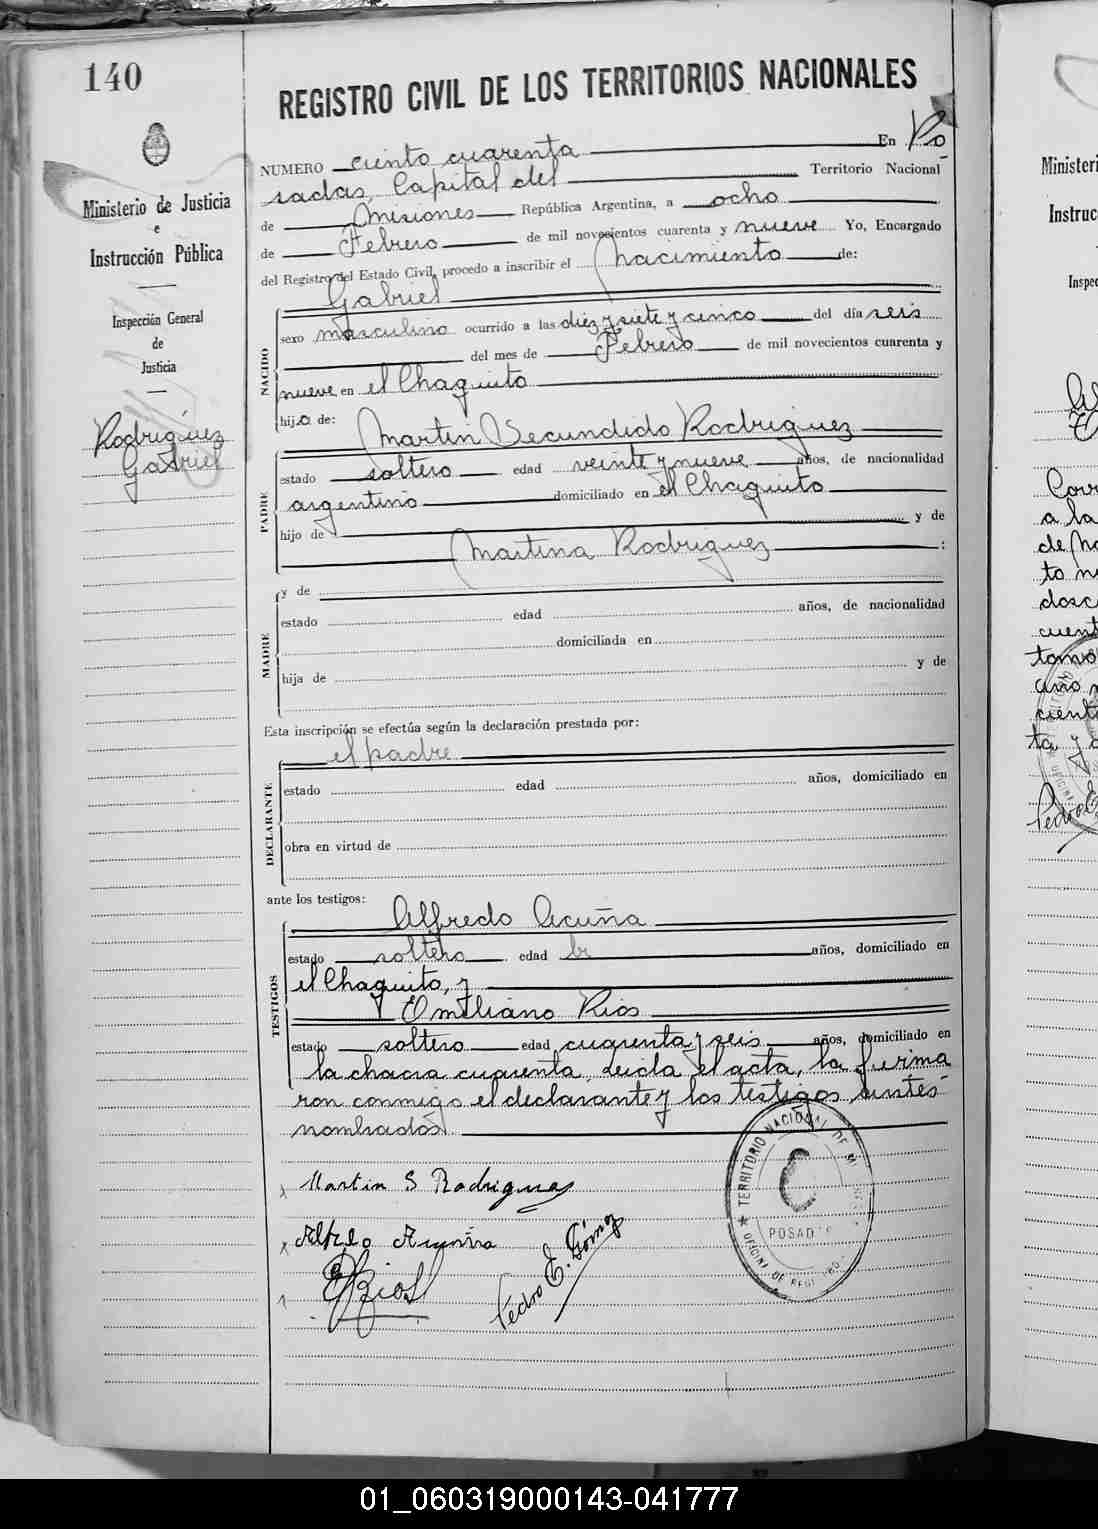 140
REGISTRO CIVIL DE LOS TERRITORIOS NACIONALES
Ministerio de Justicia
e
Instrucción Pública
Inspección General
de
Justicia
Rodriguez
Gabriel
NUMERO ciento cuarenta En Po
sadas, Capital del Territorio Nacional
de Misiones República Argentina, a ocho
de Febrero de mil novecientos cuarenta y nueve Yo, Encargado
del Registro del Estado Civil, procedo a inscribir el nacimiento de:
Gabriel
NACIDO
sexo masculino ocurrido a las diez y siete y cinco del día seis
del mes de Febrero de mil novecientos cuarenta y
nueve en el Chaquito
hijo de:
Martin Secundido Rodriguez
PADRE
estado soltero edad veinte y nueve años, de nacionalidad
argentino domiciliado en el Chaquito
hijo de y de
Martina Rodriguez :
MADRE
y de
estado edad años, de nacionalidad
domiciliada en
hija de y de
Esta inscripción se efectúa según la declaración prestada por:
el padre
DECLARANTE
estado edad años, domiciliado en
obra en virtud de
ante los testigos:
TESTIGOS
Alfredo Acuña
estado soltero edad años, domiciliado en
el Chaquito, y
Emiliano Rios
estado soltero edad cuarenta y seis años, domiciliado en
la chacra cuarenta, Leida el acta, la firma
ron conmigo el declarante y los testigos antes
nombrados.
Martin S Rodriguez
Pedro E. Gómez
E Rios
TERRITORIO NACIONAL DE
POSAD
OFICINA DE REGI
Ministeri
Instruc
Inspec
Corr
a la
de
to
dosc
cuent
tomo
año
cient
ta y
Pedro E
01_060319000143-041777